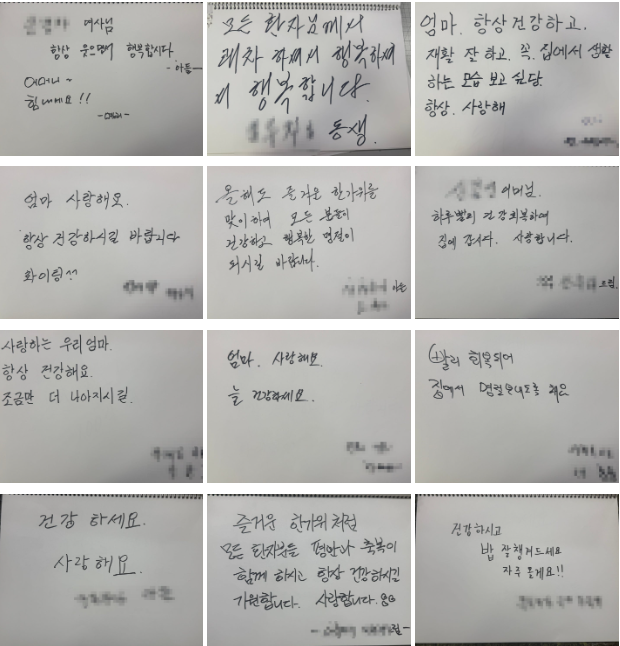 여사님
항상 웃으며 행복합시다
-아들-
어머니~
힘내세요!!
모든 환자님께서
쾌차 하께서 행복하께
행복합니다.
동생.
엄마. 항상 건강하고.
재활 잘 하고. 꼭. 집에서 생활
하는 모습 보고 싶당.
항상. 사랑해
엄마 사랑해요.
항상 건강하시길 바랍니다
화이팅^^
올해도 즐거운 한가위를
맞이하여 모든 분들이
건강하고 행복한 명절이
되시길 바랍니다.
아들
어머님.
하루빨리 건강회복하여
집에 갑시다. 사랑합니다.
드림.
사랑하는 우리엄마.
항상 건강해요.
조금만 더 나아지시길.
엄마. 사랑해요.
늘 건강하세요.
빨리 회복되어
집에서 명절보내도록 해요
건강 하세요.
사랑해요.
즐거운 한가위 처럼
모든 환자분들 평안과 축복이
함께 하시고 항상 건강하시길
기원합니다. 사랑합니다.
건강하시고
밥 잘챙겨드세요
자주 올게요!!